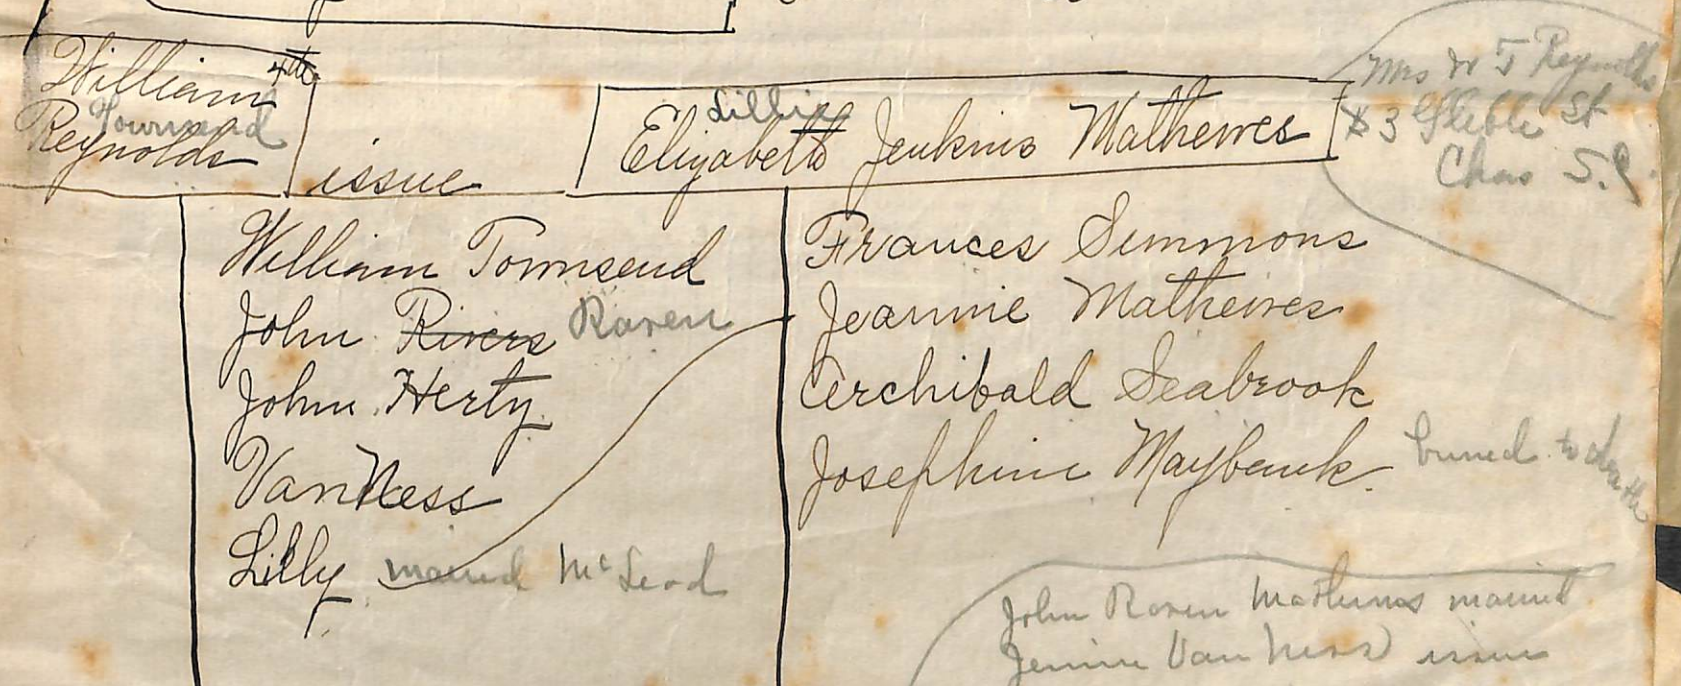 William 4th
Townsend
Reynolds
issue
Lillie
Elizabeth Jenkins Mathewes
Mrs W T Reynolds
$3 Glebe St
Chas S.C.
William Townsend
John Rivers Raven
John Herty
VanNess
Lilly married McLeod
Frances Simmons
Jeannie Mathewes
Archibald Seabrook
Josephine Maybank. burned to death
John Raven Mathewes married
Jennie Van Ness issue